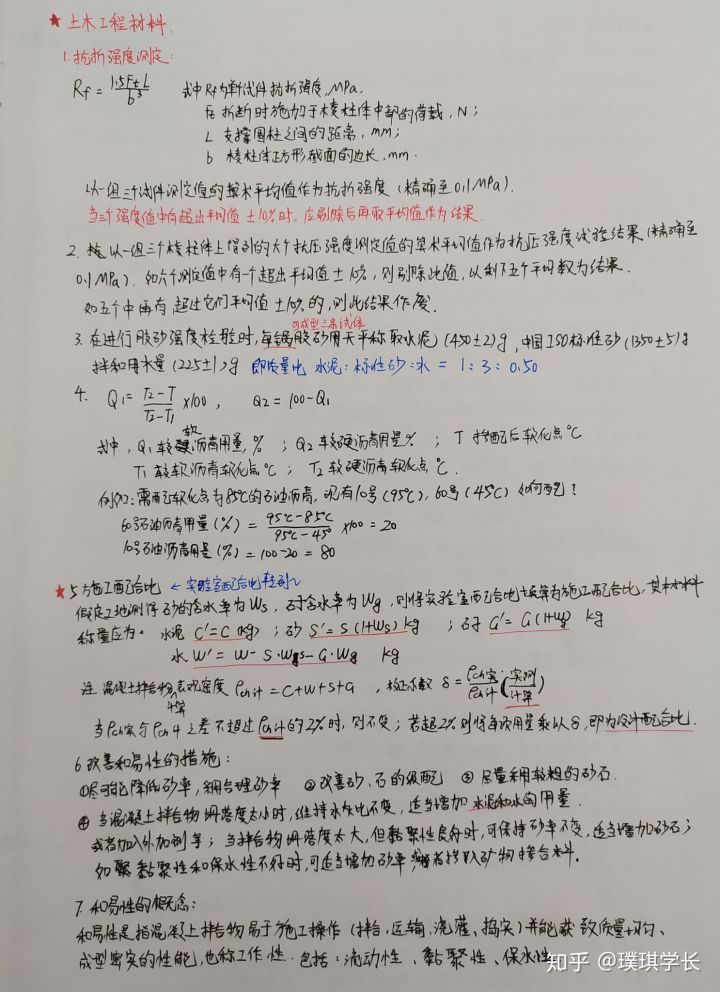 ★ 土木工程材料.
1. 抗折强度测定:
Rf = 1.5FtL / b³ 式中 Rf为单试件抗折强度, MPa.
Ft 折断时施加于棱柱体中部的荷载, N;
L 支撑圆柱之间的距离, mm;
b 棱柱体正方形截面的边长. mm.
以一组三个试件测定值的算术平均值作为抗折强度 (精确至0.1MPa).
当三个强度值中有超出平均值 ±10%时, 应剔除后再取平均值作为结果.
2. 以一组三个棱柱体上得到的六个抗压强度测定值的算术平均值作为抗压强度试验结果 (精确至
0.1MPa). 如六个测定值中有一个超出平均值 ±10%, 则剔除此值, 以剩下五个平均数为结果.
如五个中再有超过它们平均值 ±10% 的, 则此结果作废.
可成型三条试体
3. 在进行胶砂强度检验时, 每锅胶砂用天平称取水泥 (450±2)g, 中国ISO标准砂 (1350±5)g
拌和用水量 (225±1)g 即质量比 水泥:标准砂:水 = 1:3:0.50
4. Q1 = T2-T / T2-T1 ×100, Q2 = 100-Q1
式中, Q1 较软沥青用量, %; Q2 较硬沥青用量%; T 掺配后软化点℃
T1 较软沥青软化点℃; T2 较硬沥青软化点℃.
例如: 需配软化点为85℃的石油沥青, 现有10号 (95℃), 60号 (45℃) 如何配?
60号石油沥青用量 (%) = 95℃-85℃ / 95℃-45° ×100 = 20
10号石油沥青用量 (%) = 100-20 = 80
★ 5 施工配合比 ← 实验室配合比
假定工地测得砂的含水率为Ws, 石子含水率为Wg, 则将实验室配合比换算为施工配合比, 其材料
称量应为: 水泥 C'=C (kg); 砂 S'=S(1+Ws) kg; 石子 G'=G(1+Wg) kg
水 W'=W-S·Ws-G·Wg kg
注 混凝土拌合物计算表观密度 ρch计=C+W+S+G, 校正系数 δ = ρch实 / ρch计 (实测 / 计算)
当ρch实与ρch计之差不超过ρch计的2%时, 则不变; 若超2%则将每项用量乘以δ, 即为设计配合比.
6 改善和易性的措施:
①尽可能降低砂率, 采用合理砂率 ②改善砂、石的级配 ③尽量采用较粗的砂石.
④ 当混凝土拌合物坍落度太小时, 维持水灰比不变, 适当增加水泥和水的用量.
或者加入外加剂等; 当拌合物坍落度太大, 但黏聚性良好时, 可保持砂率不变, 适当增加砂石;
如黏聚性和保水性不好时, 可适当增加砂率, 或者掺入矿物掺合料.
7. 和易性的概念:
和易性是指混凝土拌合物易于施工操作 (拌合, 运输, 浇灌, 捣实) 并能获致质量均匀、
成型密实的性能, 也称工作性. 包括: 流动性、黏聚性、保水性
知乎 @璞琪学长